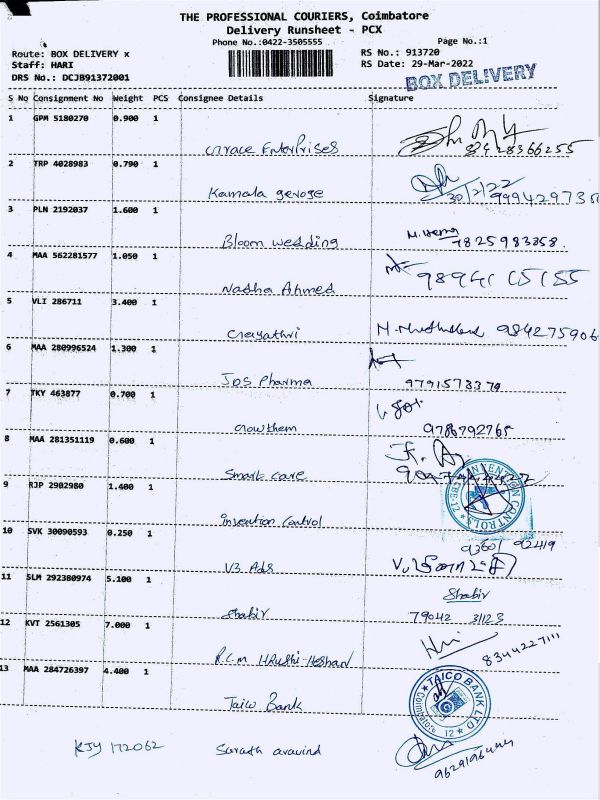 THE PROFESSIONAL COURIERS, Coimbatore
Delivery Runsheet - PCX
Phone No.:0422-3505555
Page No.:1
Route: BOX DELIVERY x
RS No.: 913720
Staff: HARI
RS Date: 29-Mar-2022
DRS No.: DCJB91372001
BOX DELIVERY
S No Consignment No Weight PCS Consignee Details Signature
1 GPM 5180270 0.900 1
Grace Enterprises
2 TRP 4028983 0.790 1
Kamala geroge
30/2/22
3 PLN 2192037 1.600 1
Bloom wedding
7825983858.
4 MAA 562281577 1.050 1
Nadha Ahmed
5 VLI 286711 3.400 1
Gayathri
984275906
6 MAA 280996524 1.300 1
JDS Pharma
9791573379
7 TKY 463877 0.700 1
Growthem
9786792765
8 MAA 281351119 0.600 1
Smart care
9 RJP 2902980 1.400 1
Invention Control
INVENTION CONTROLS
CBE-12
10 SVK 30090593 0.250 1
93601 92419
V3 Ads
11 SLM 292380974 5.100 1
Shabir
Shabir
79042 31123
12 KVT 2561305 7.000 1
8344227111
13 MAA 284726397 4.400 1
Taico Bank
TAICO BANK LTD
KJY 172062
aravind